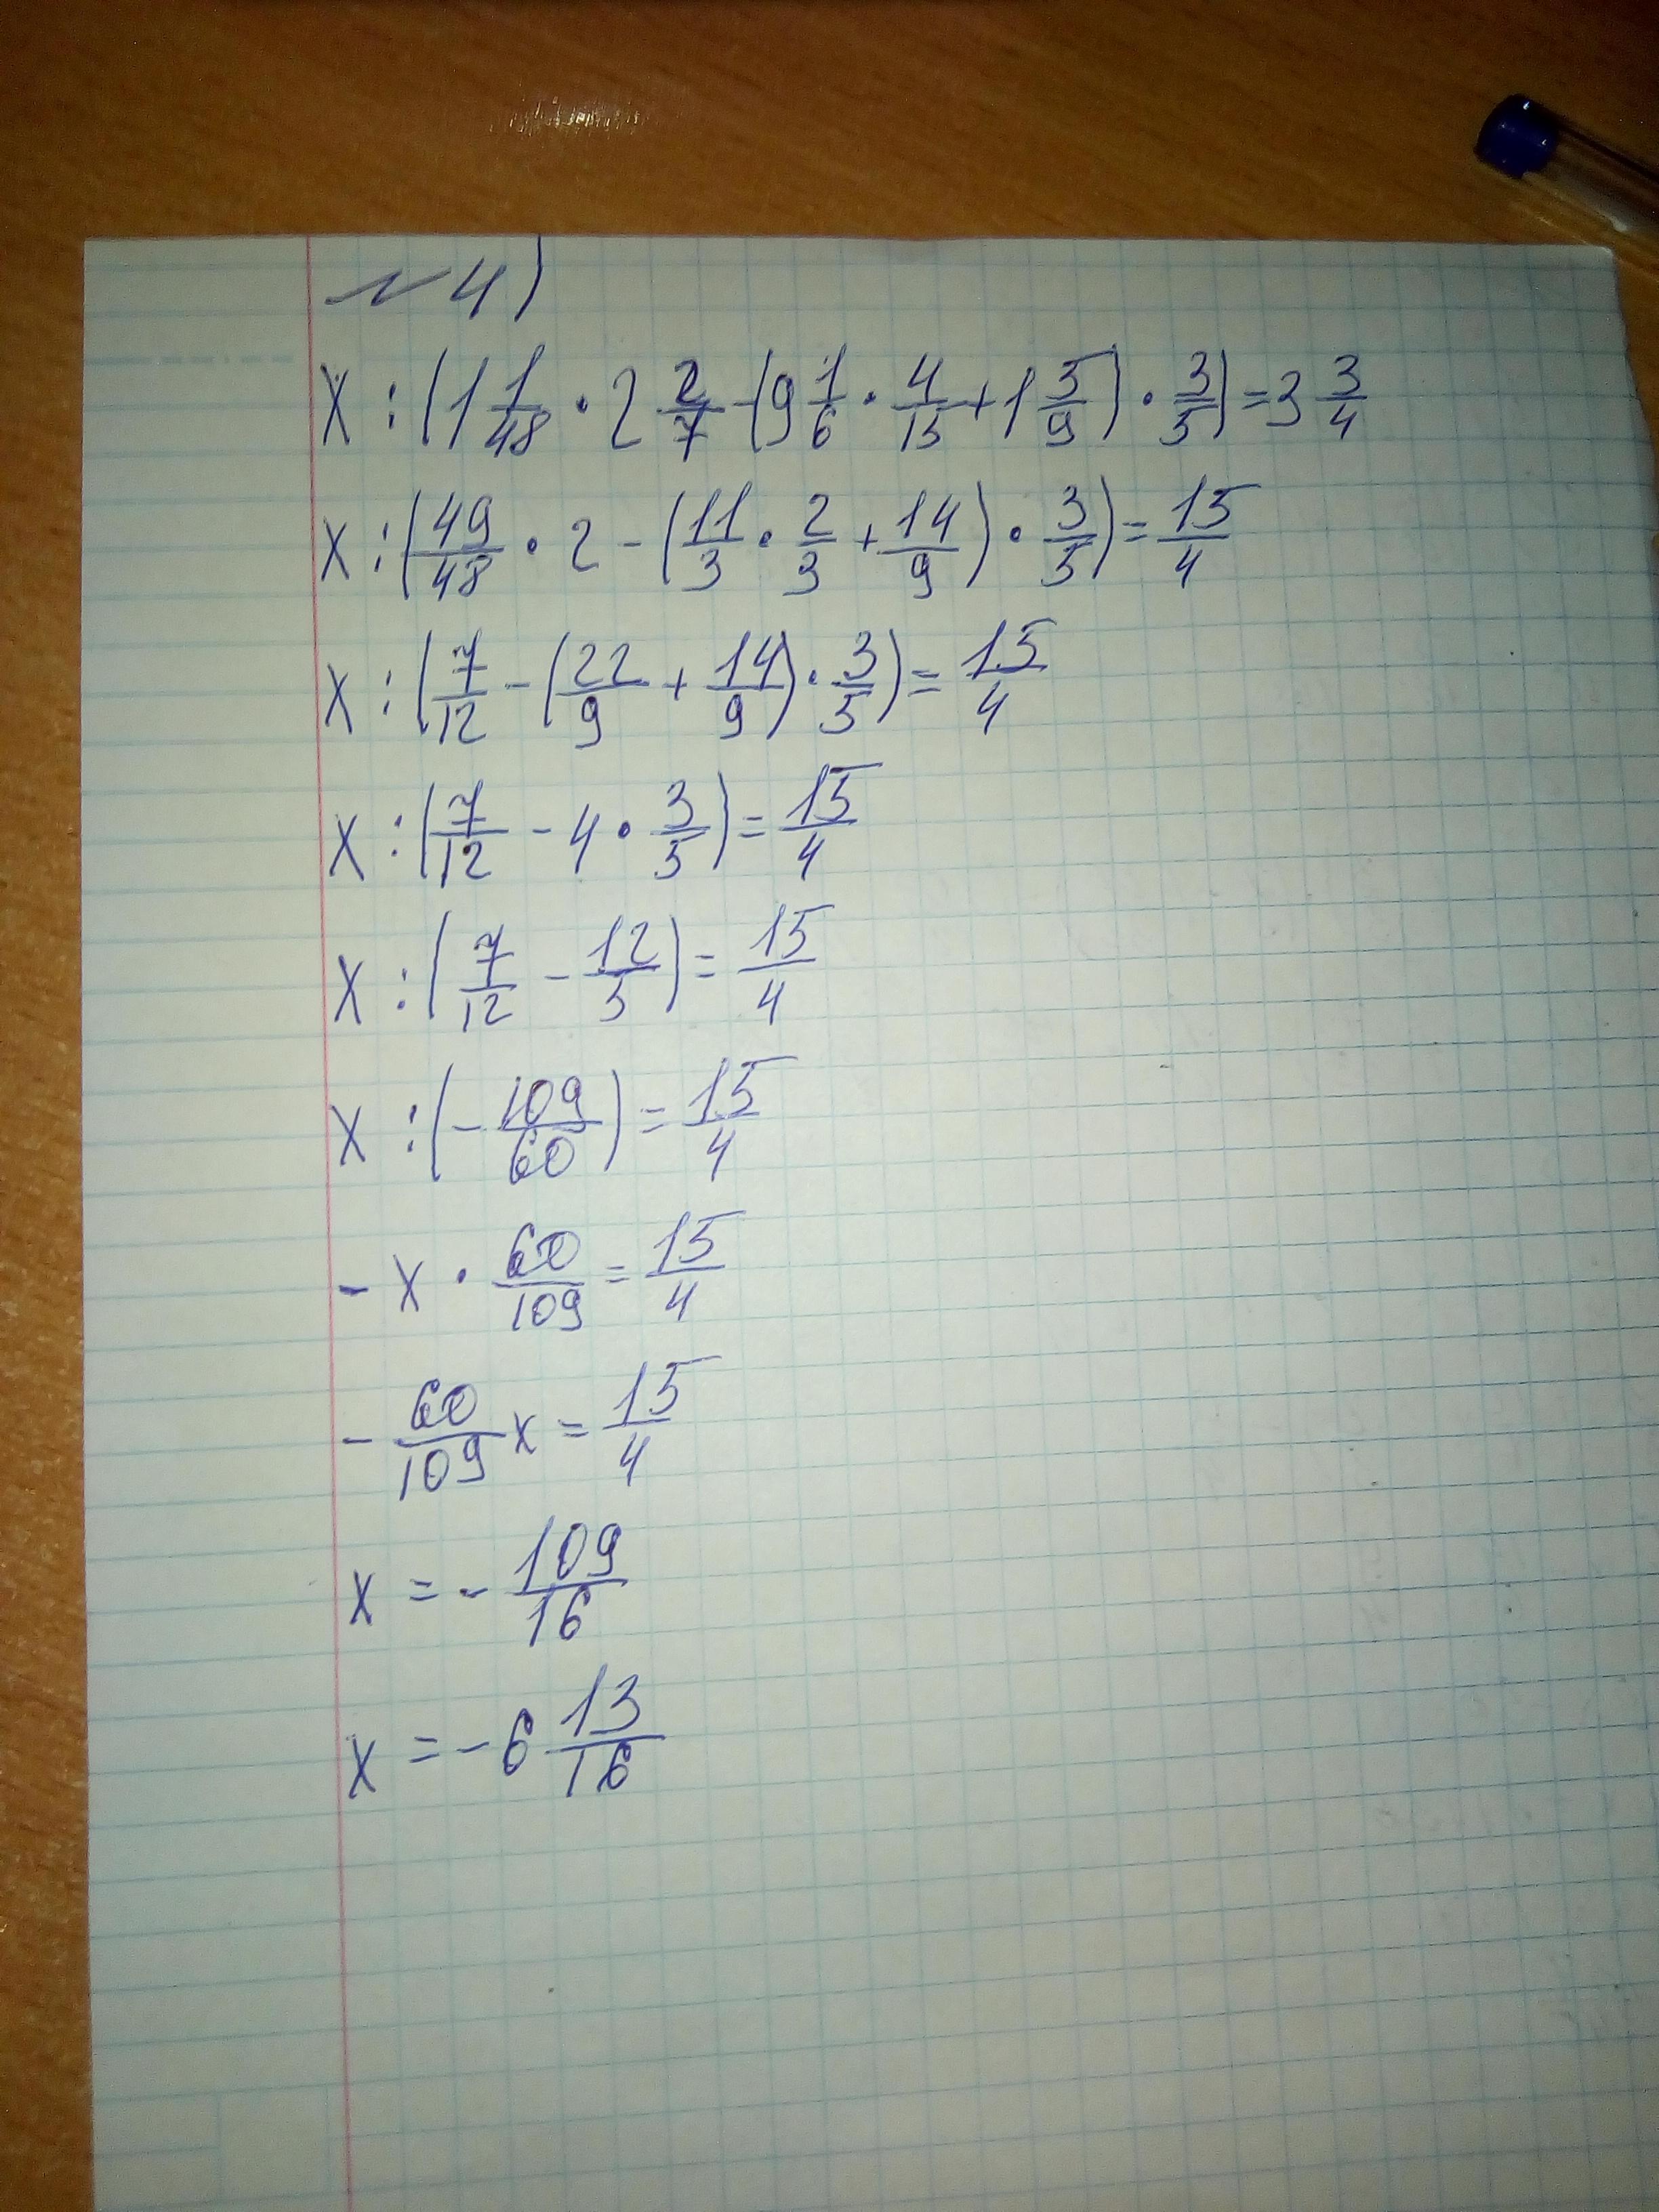 №4)
x : (1 1/48 · 2 2/7 - (9 1/6 · 4/15 + 1 5/9) · 3/5) = 3 3/4
x : (49/48 · 2 - (11/3 · 2/3 + 14/9) · 3/5) = 15/4
x : (7/12 - (22/9 + 14/9) · 3/5) = 15/4
x : (7/12 - 4 · 3/5) = 15/4
x : (7/12 - 12/5) = 15/4
x : (- 109/60) = 15/4
- x · 60/109 = 15/4
- 60/109 x = 15/4
x = - 109/16
x = - 6 13/16